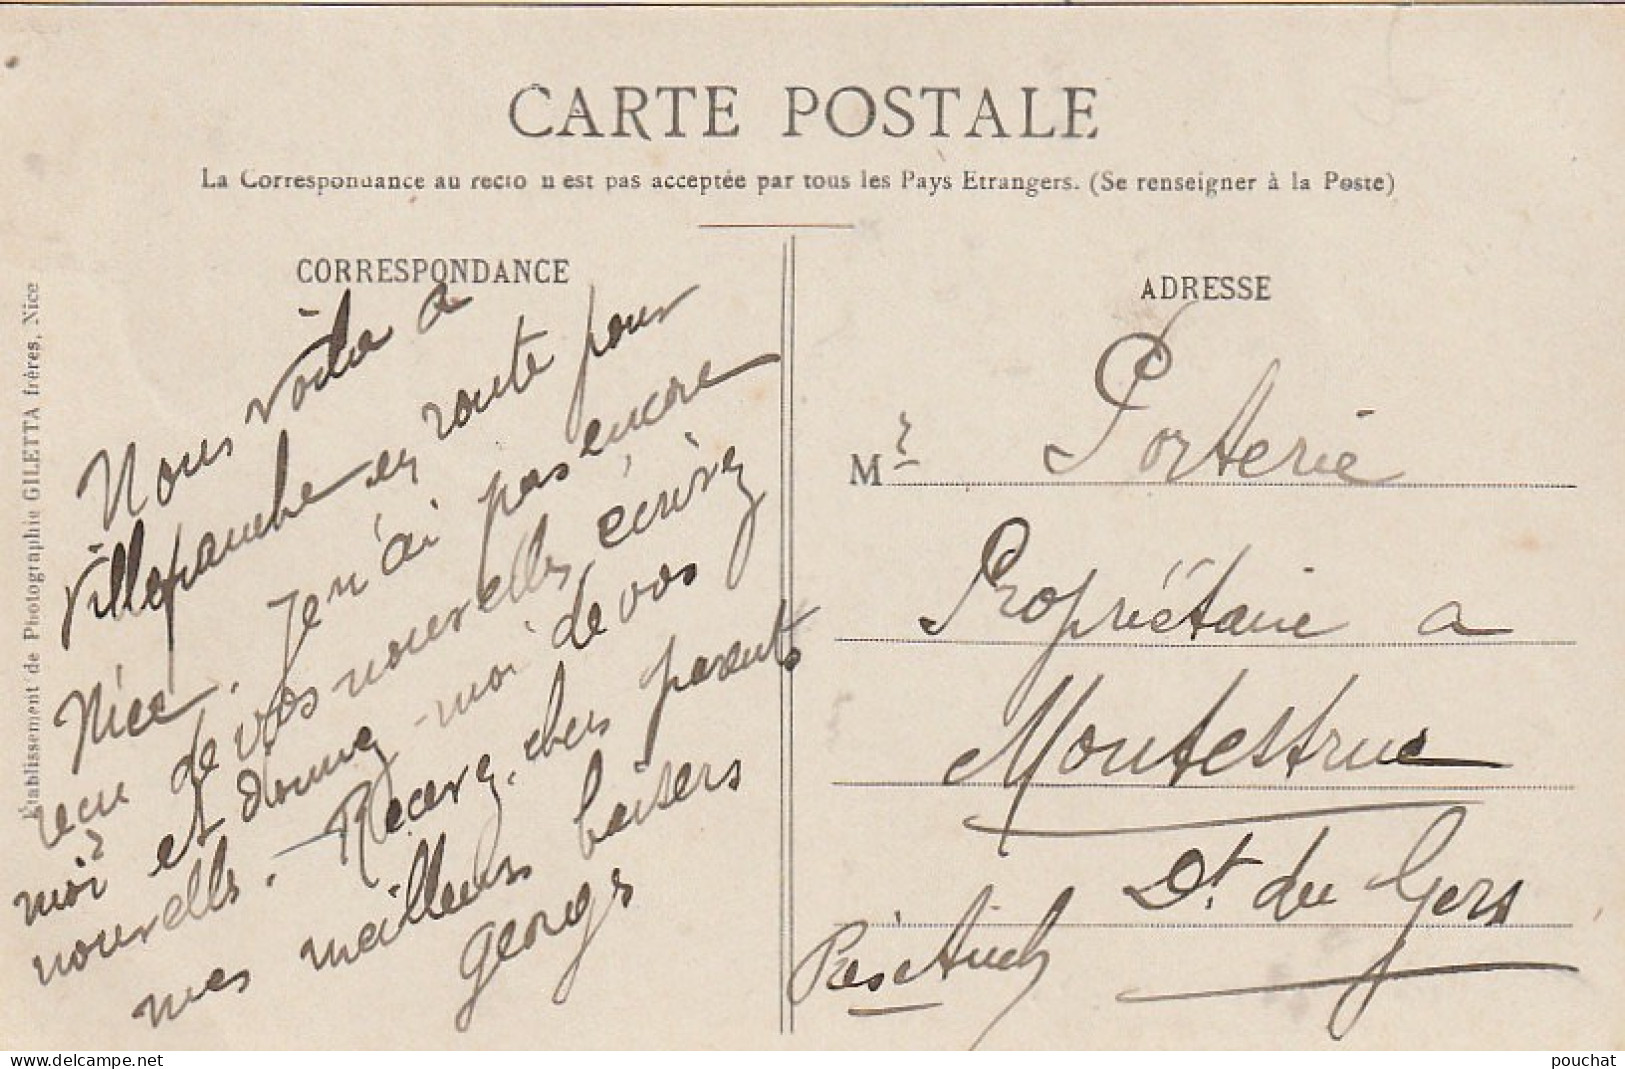 CARTE POSTALE
La Correspondance au recto n'est pas acceptée par tous les Pays Etrangers. (Se renseigner à la Poste)
CORRESPONDANCE
Nous voila a
Villefranche en route pour
Nice. Je n'ai pas encore
recu de vos nouvelles écrivez
moi et donnez-moi de vos
nouvelles. - Recevez chers parents
mes meilleurs baisers
Georges
ADRESSE
Mr Porterie
Propriétaire a
Montestruc
Dt. du Gers
Près Auch
Établissement de Photographie GILETTA frères, Nice
www.delcampe.net
pouchat